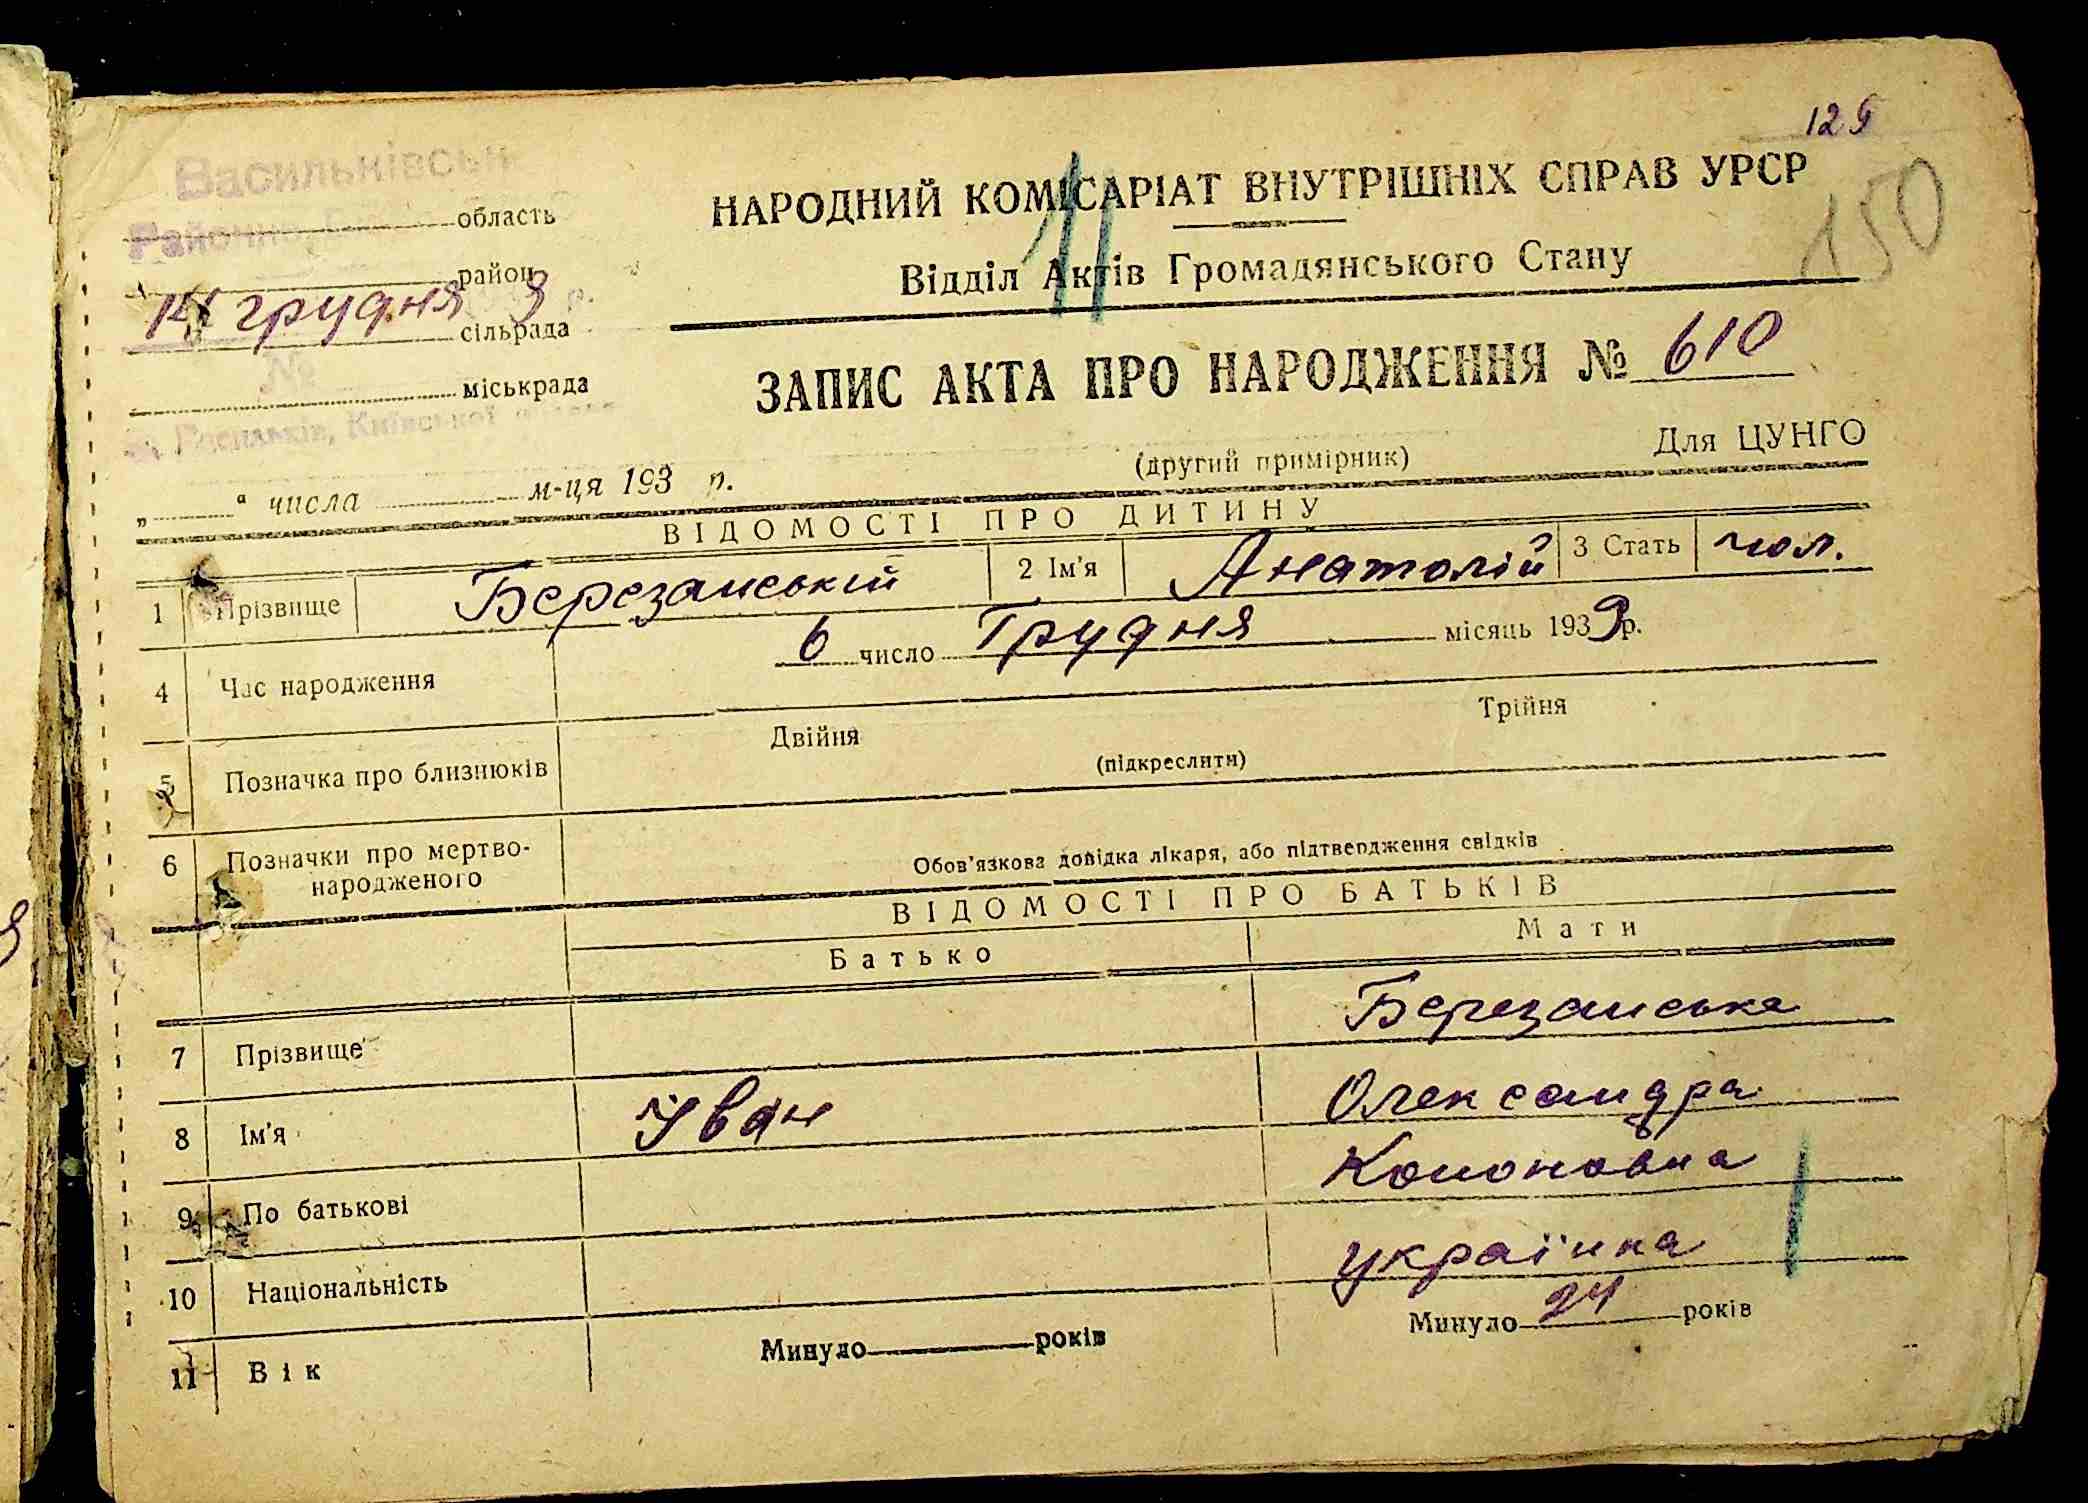 125
150
Васильківськ
область
район
14 грудня 9 р.
сільрада
№
міськрада
м. Васильків, Київської
НАРОДНИЙ КОМІСАРІАТ ВНУТРІШНІХ СПРАВ УРСР
Відділ Актів Громадянського Стану
ЗАПИС АКТА ПРО НАРОДЖЕННЯ № 610
(другий примірник) Для ЦУНГО
„ “ числа м-ця 193 р.
ВІДОМОСТІ ПРО ДИТИНУ
1 Прізвище Березанський 2 Ім'я Анатолій 3 Стать чол.
4 Час народження 6 число Грудня місяць 1939 р.
5 Позначка про близнюків Двійня (підкреслити) Трійня
6 Позначки про мертво-
народженого Обов'язкова довідка лікаря, або підтвердження свідків
ВІДОМОСТІ ПРО БАТЬКІВ
Батько Мати
7 Прізвище Березанська
8 Ім'я Іван Олександра
9 По батькові Кононовна
10 Національність українка
11 Вік Минуло років Минуло 24 років